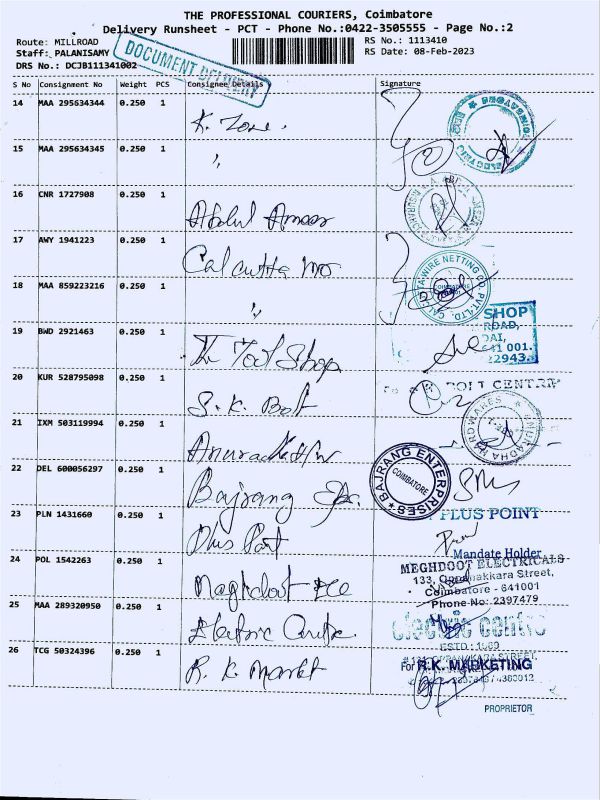 THE PROFESSIONAL COURIERS, Coimbatore
Delivery Runsheet - PCT - Phone No.:0422-3505555 - Page No.:2
Route: MILLROAD
RS No.: 1113410
Staff: PALANISAMY
RS Date: 08-Feb-2023
DRS No.: DCJB111341002
DOCUMENT DELIVERY
S No Consignment No Weight PCS Consignee Details Signature
14 MAA 295634344 0.250 1 K. Zone.
15 MAA 295634345 0.250 1 "
16 CNR 1727908 0.250 1 Abdul Ameer
17 AWY 1941223 0.250 1 Calcutta
18 MAA 859223216 0.250 1 "
CALCUTTA WIRE NETTING CO. PVT. LTD.
COIMBATORE
19 BWD 2921463 0.250 1 The Tool Shop
SHOP
ROAD,
641 001.
22943
20 KUR 528795098 0.250 1 S. K. Bolt
BOLT CENTRE
21 IXM 503119994 0.250 1 Anuradha H/w
ANURADHA HARDWARES
22 DEL 600056297 0.250 1 Bajrang
BAJRANG ENTERPRISES
COIMBATORE
23 PLN 1431660 0.250 1 Plus Point
PLUS POINT
Mandate Holder
24 POL 1542263 0.250 1 Meghdoot Ele
MEGHDOOT ELECTRICALS
133, Oppanakkara Street,
Coimbatore - 641001
Phone No: 2397479
25 MAA 289320950 0.250 1 Electric Centre
electric centre
ESTD : 1969
26 TCG 50324396 0.250 1 R. K. Market
For R.K. MARKETING
PROPRIETOR